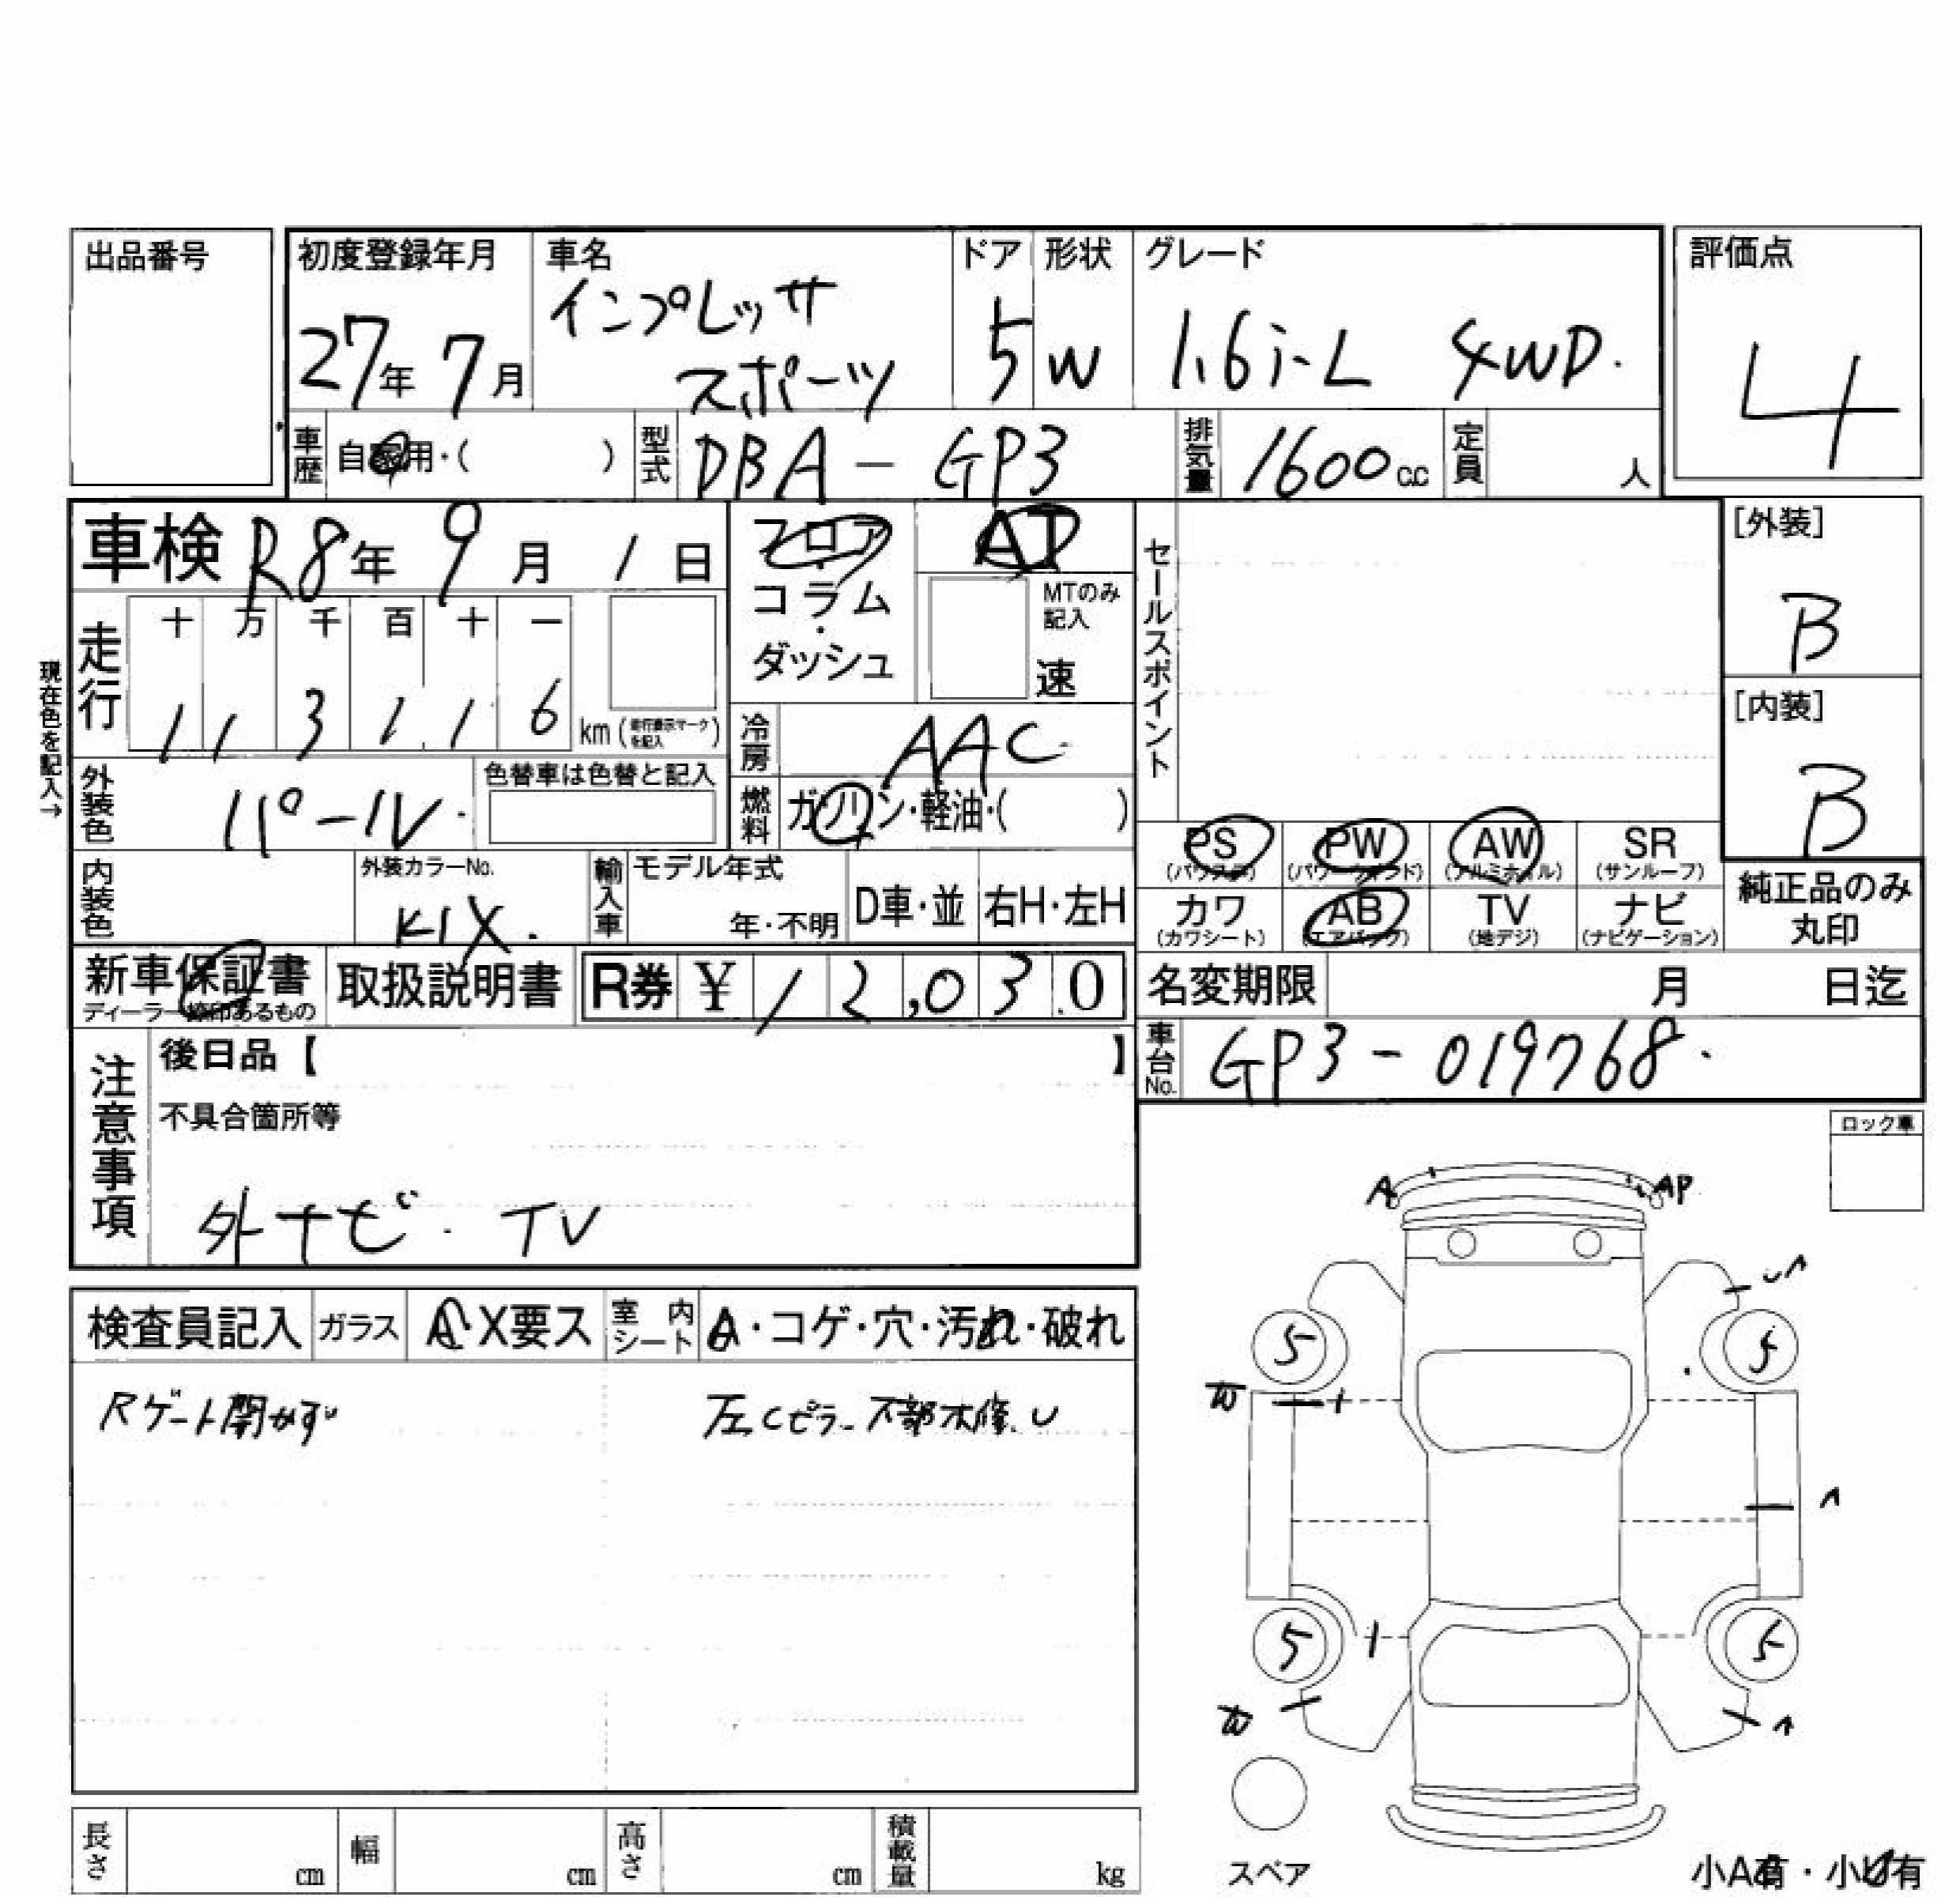 出品番号
初度登録年月 車名 ドア 形状 グレード 評価点
27年 7月 インプレッサ スポーツ 5 W 1.6i-L 4WD. 4
車歴 自家用・( ) 型式 DBA-GP3 排気量 1600 c.c 定員 人
車検 R8年 9月 1日
フロア・コラム・ダッシュ
AT
MTのみ記入
速
セールスポイント
[外装]
B
[内装]
B
現在色を記入→
走行 十 万 千 百 十 一
1 1 3 1 1 6 km (走行表示マークを記入)
冷房 AAC
外装色 パール 色替車は色替と記入
燃料 ガソリン・軽油・( )
PS (パワステ) PW (パワーウィンド) AW (アルミホイル) SR (サンルーフ)
カワ (カワシート) AB (エアバッグ) TV (地デジ) ナビ (ナビゲーション)
純正品のみ丸印
内装色 外装カラーNo. K1X. 輸入車 モデル年式 年・不明 D車・並 右H・左H
新車保証書 取扱説明書 R券 ¥ 12,030
ディーラー捺印あるもの
名変期限 月 日迄
車台No. GP3-019768.
注意事項
後日品【 】
不具合箇所等
外ナビ. TV
ロック車
検査員記入 ガラス A・X要ス 室内シート A・コゲ・穴・汚れ・破れ
Rゲート開かず 左Cピラー下部
A AP
5 5
W
5 5
W
スペア
長さ cm 幅 cm 高さ cm 積載量 kg
小A有・小U有